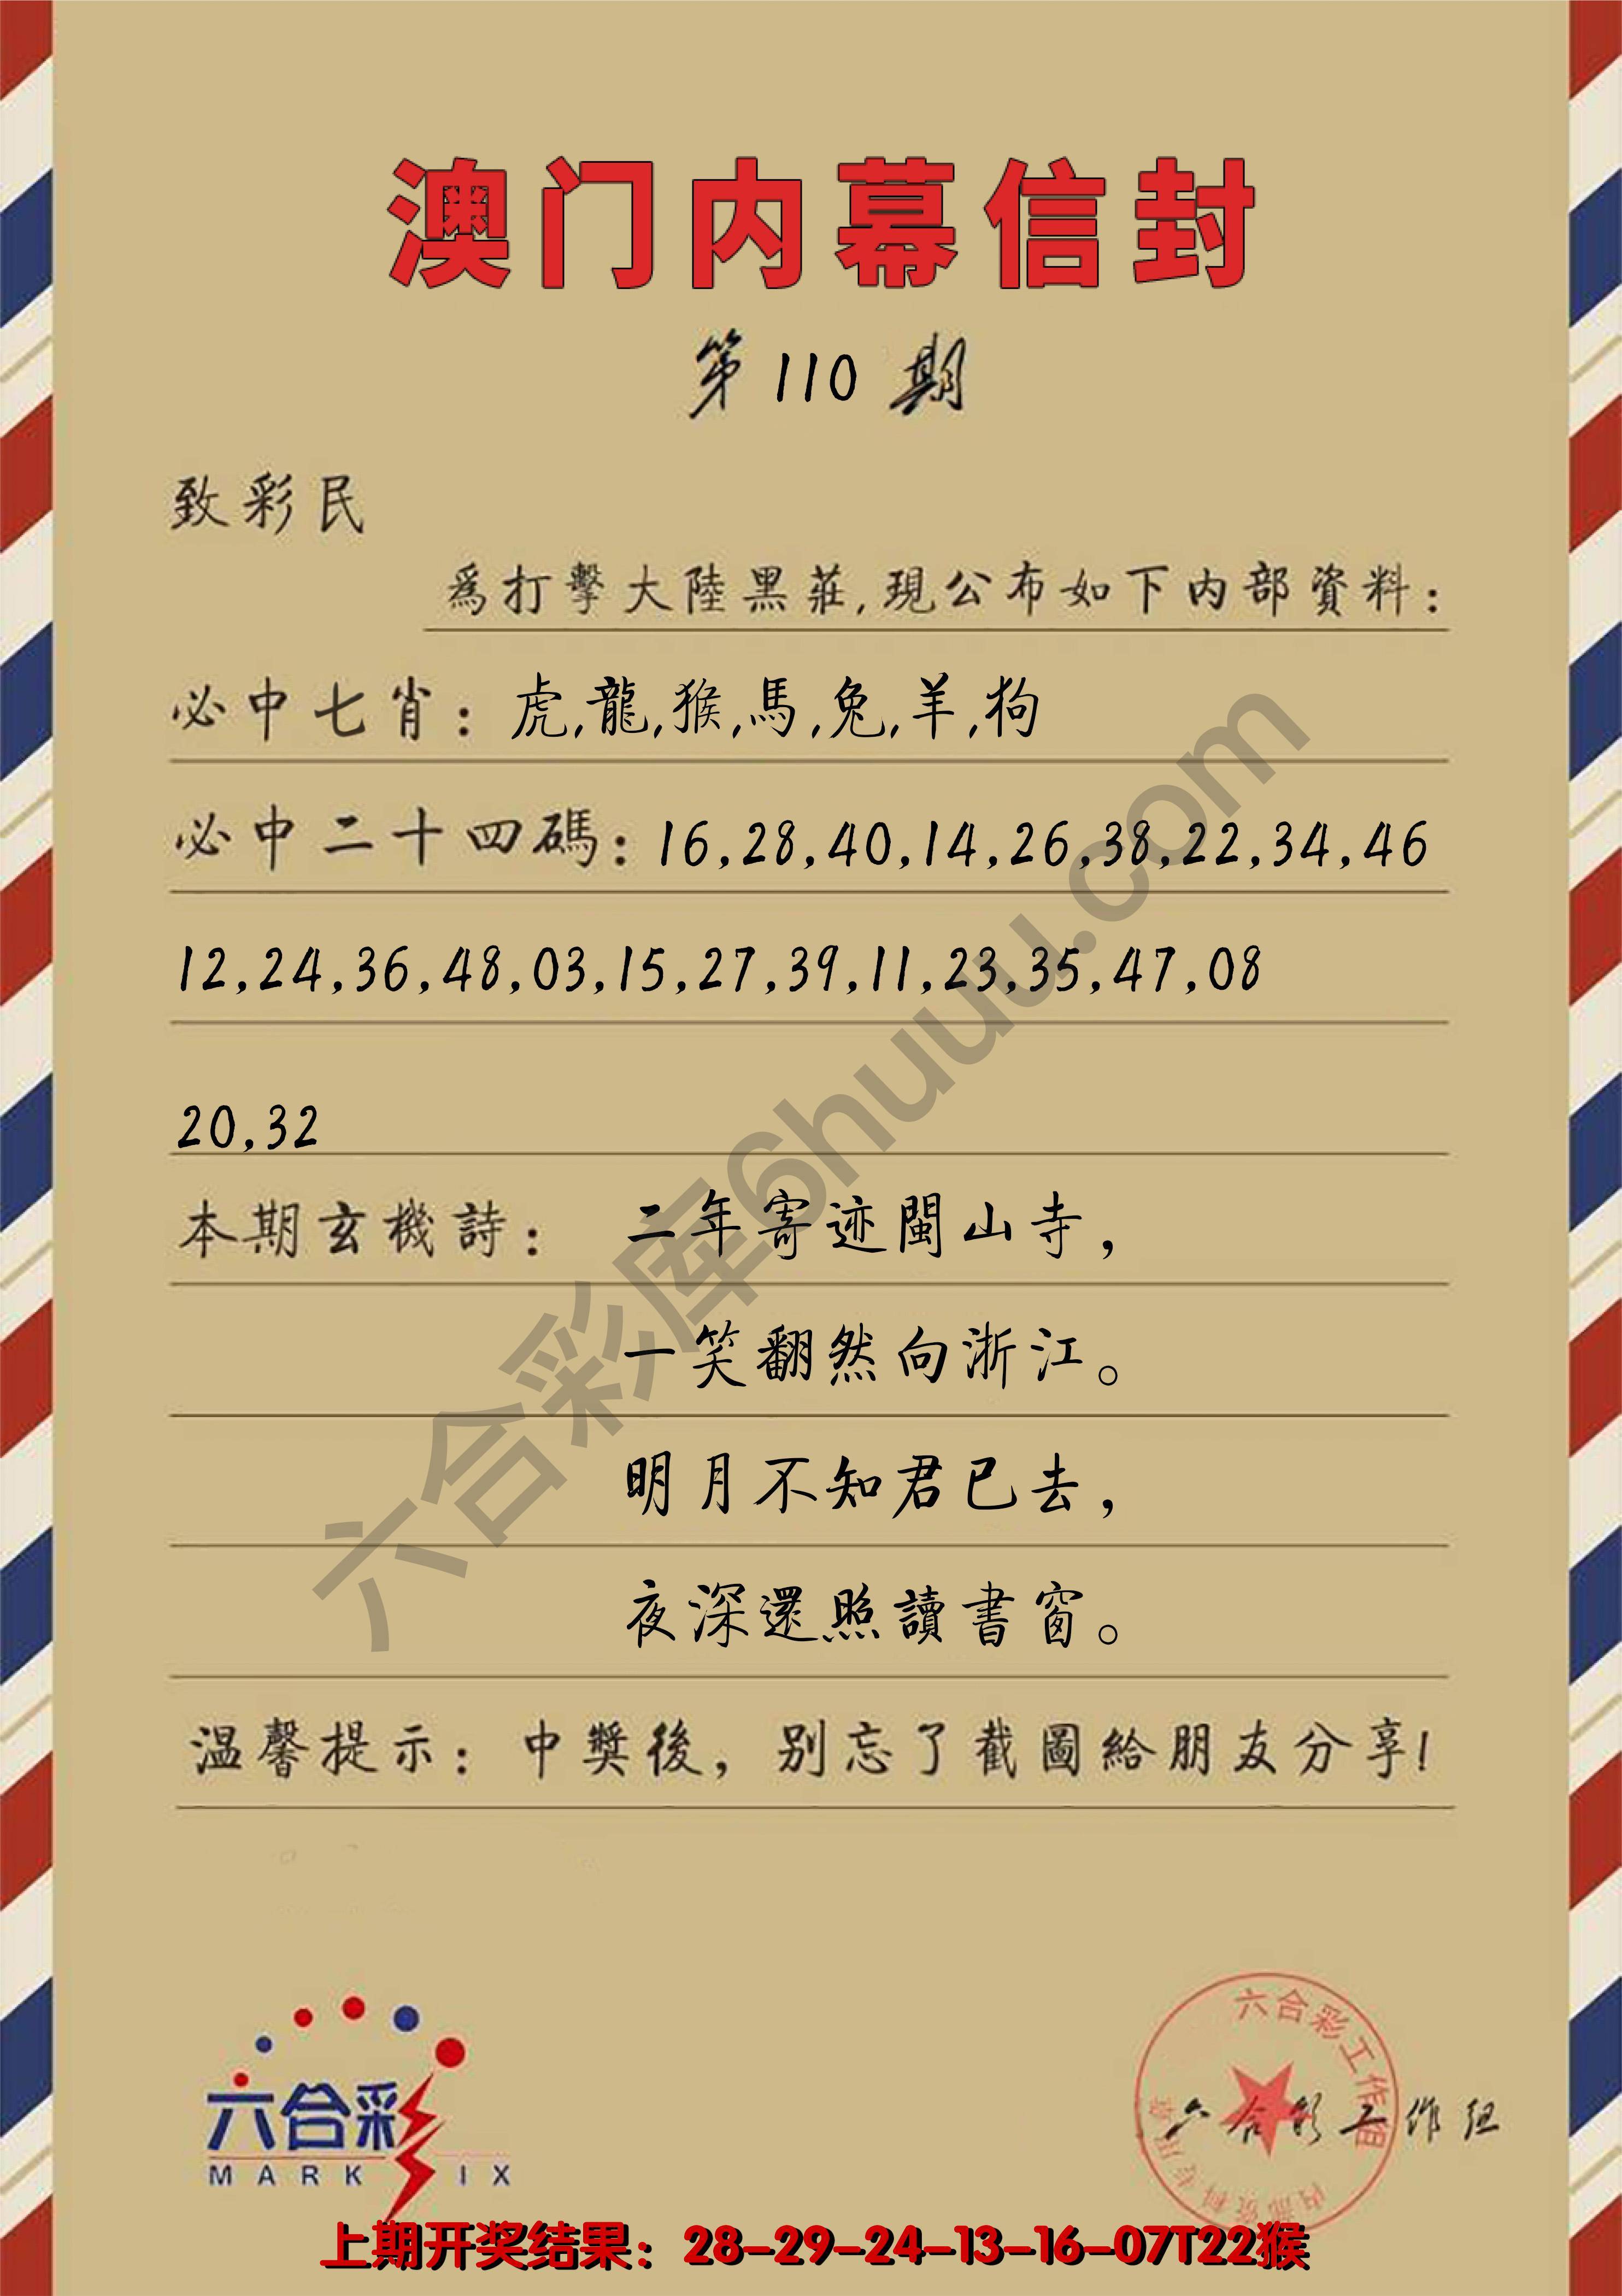 澳门内幕信封
第110期
致彩民
為打擊大陸黑莊,現公布如下内部資料:
必中七肖:虎,龍,猴,馬,兔,羊,狗
必中二十四碼:16,28,40,14,26,38,22,34,46
12,24,36,48,03,15,27,39,11,23,35,47,08
20,32
本期玄機詩: 二年寄迹閩山寺,
一笑翻然向浙江。
明月不知君已去,
夜深還照讀書窗。
温馨提示:中獎後,别忘了截圖給朋友分享!
六合彩库6huuu.com
六合彩
MARK IX
六合彩工作组
内部资料专用章
六合彩工作组
上期开奖结果:28-29-24-13-16-07T22猴